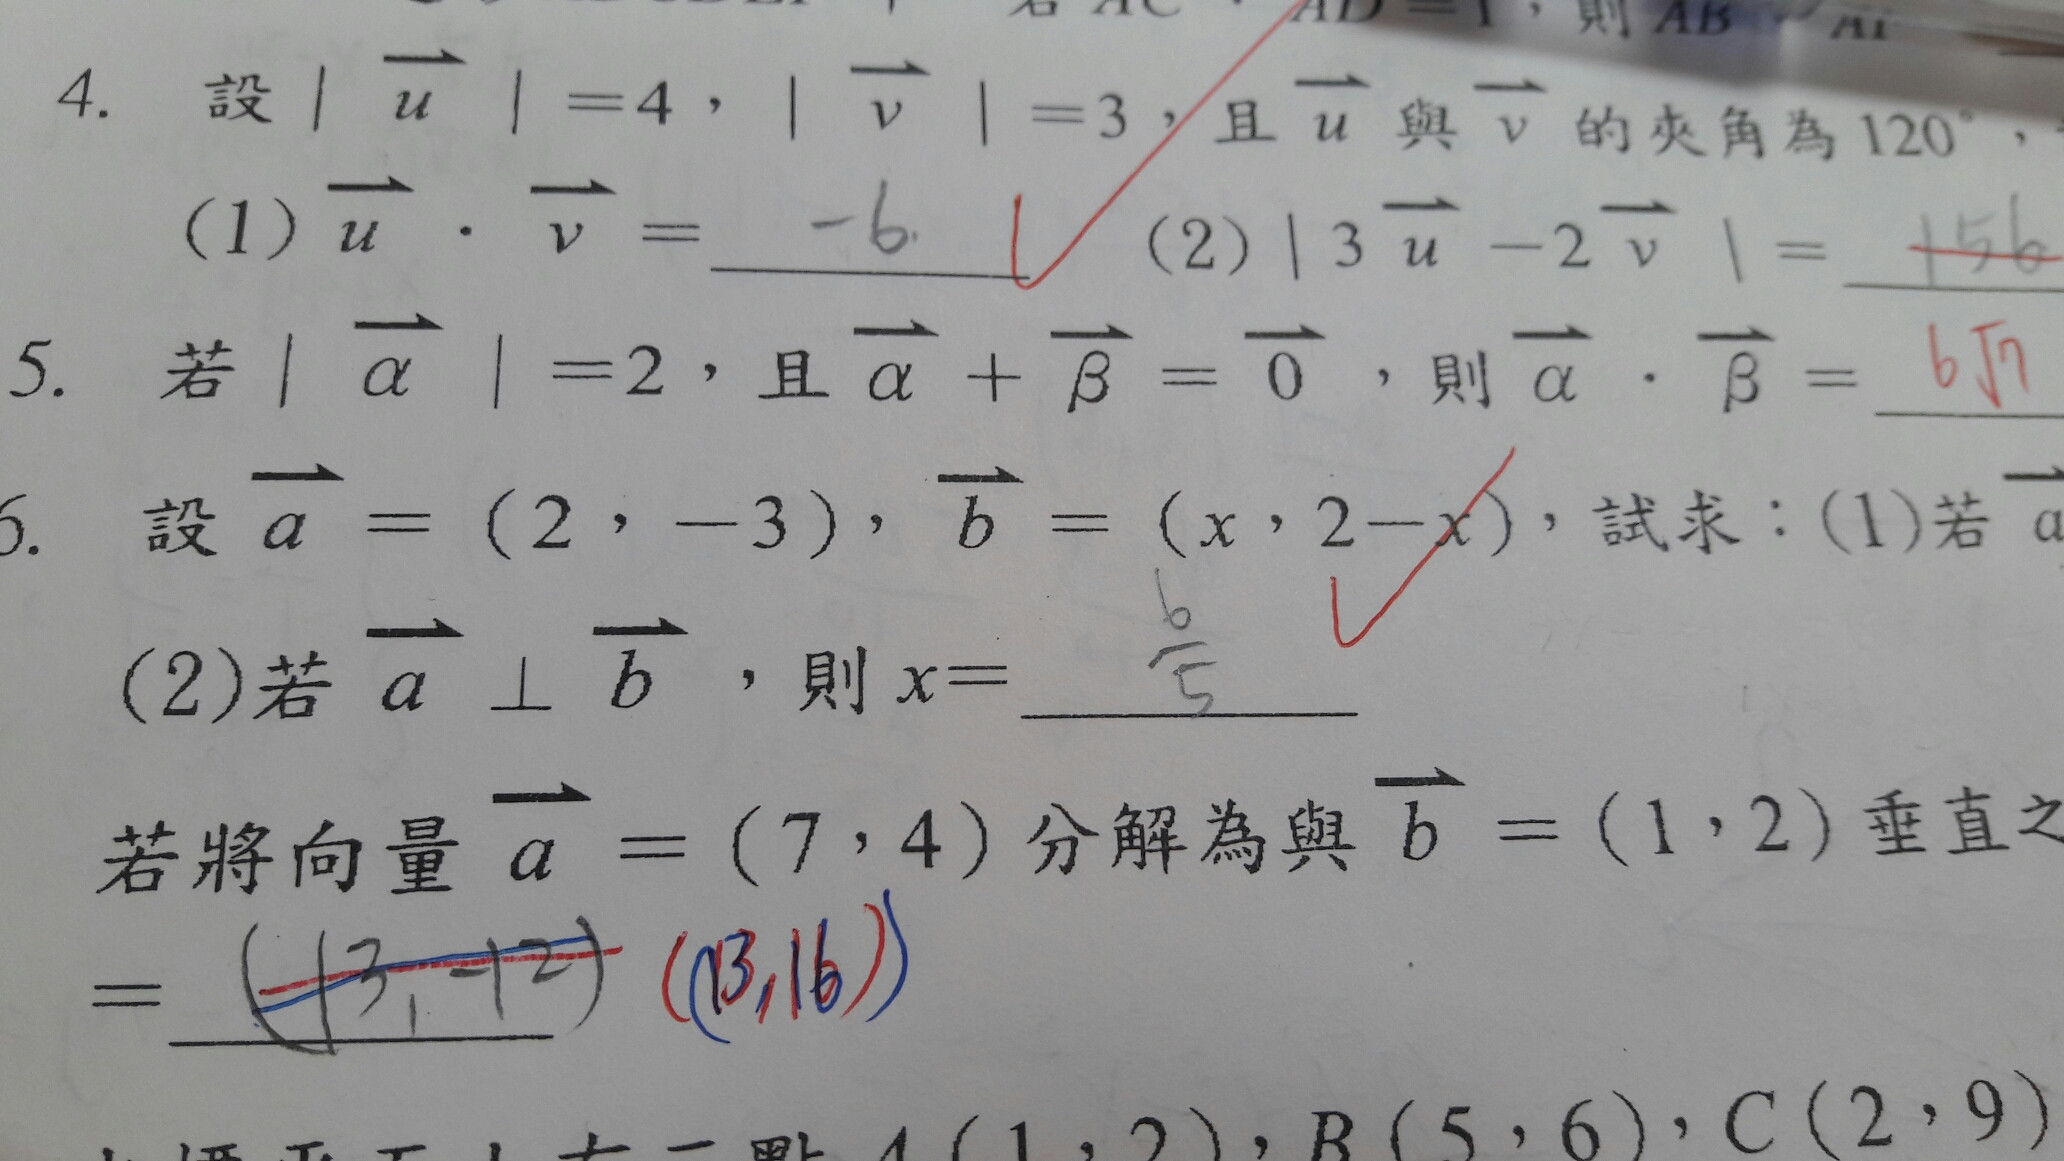 若 AC · AD = 1，則 AB
4. 設 | u | = 4，| v | = 3，且 u 與 v 的夾角為 120°，
(1) u · v = -6 (2) | 3 u − 2 v | = 156
5. 若 | α | = 2，且 α + β = 0，則 α · β = 6√7
6. 設 a = (2，−3)，b = (x，2−x)，試求：(1)若 a
(2)若 a ⊥ b，則 x = 6/5
若將向量 a = (7，4) 分解為與 b = (1，2) 垂直之
= (-13, -12) (13, 16)
A (1，2)，B (5，6)，C (2，9)